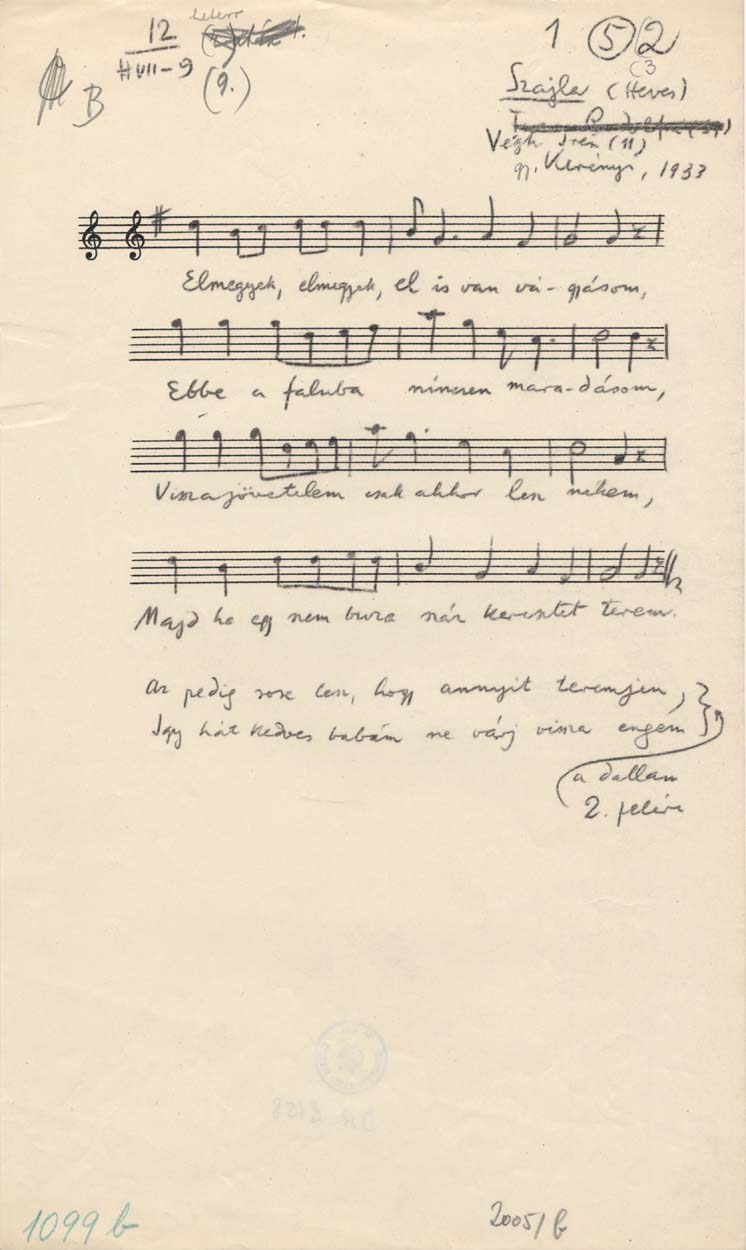 12
heterr
H VII-9
(9.)
B
1 (5) 2
C3
Szajla (Heves)
Végh Irén (11)
gy. Kerényi, 1933
Elmegyek, elmegyek, el is van vá-gyásom,
Ebbe a faluba nincsen mara-dásom,
Visszajövetelem csak akkor lesz nékem,
Majd ha egy szem buza száz keresztet terem.
Az pedig sose lesz, hogy annyit teremjen,
Igy hát kedves babám ne várj vissza engem
a dallam
2. felére
1099 b
2005/b